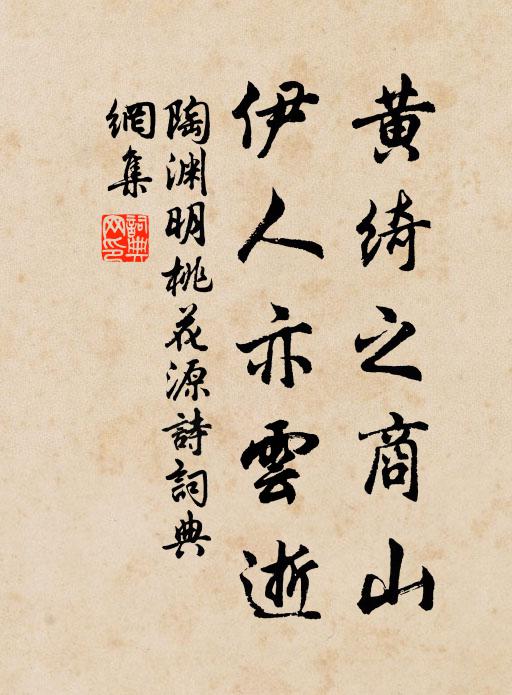 黄绮之商山
伊人亦雲逝
陶渊明桃花源詩詞典
網集
詞典網印